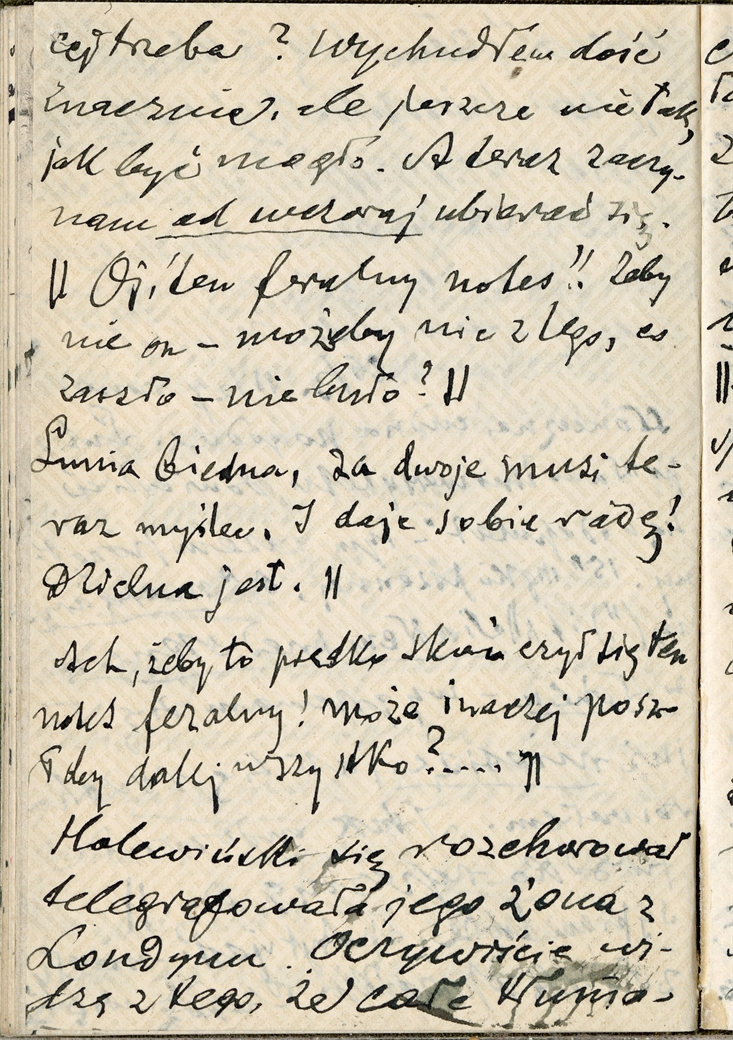 cej trzeba? Wychudłem dość
znacznie, ale jeszcze nie tak,
jak być mogło. A teraz zaczy-
nam od wczoraj ubierać się.
|| Oj, ten feralny notes!! Żeby
nie on – możeby nic z tego, co
zaszło – nie było? ||
Lunia biedna, za dwoje musi te-
raz myśleć. I daje sobie radę!
Dzielna jest. ||
Ach, żeby to prędko skończył się ten
notes feralny! może inaczej posz-
łdby dalej wszystko?.... ||
Holewiński się rozchorował
telegrafowała jego żona z
Londynu. Oczywiście wi-
dzę z tego, że całe